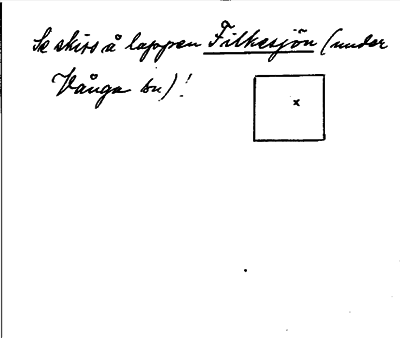 Se skiss å lappen Filkesjön (under
Vånga sn)!
x